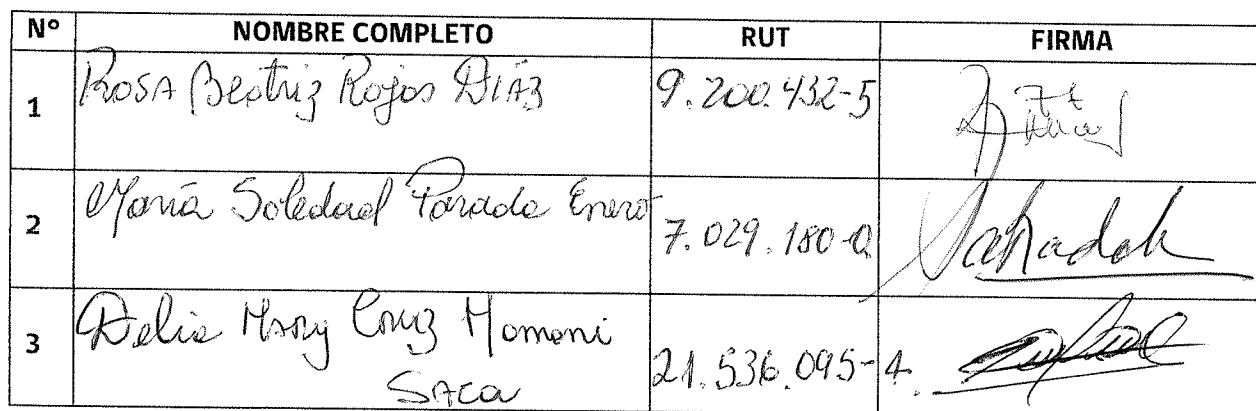 Nº NOMBRE COMPLETO RUT FIRMA
1 Rosa Beatriz Rojas Díaz 9.200.432-5
2 María Soledad Parada Enero 7.029.180-0
3 Delia Mary Cruz Mamani 21.536.095-4.
Saca